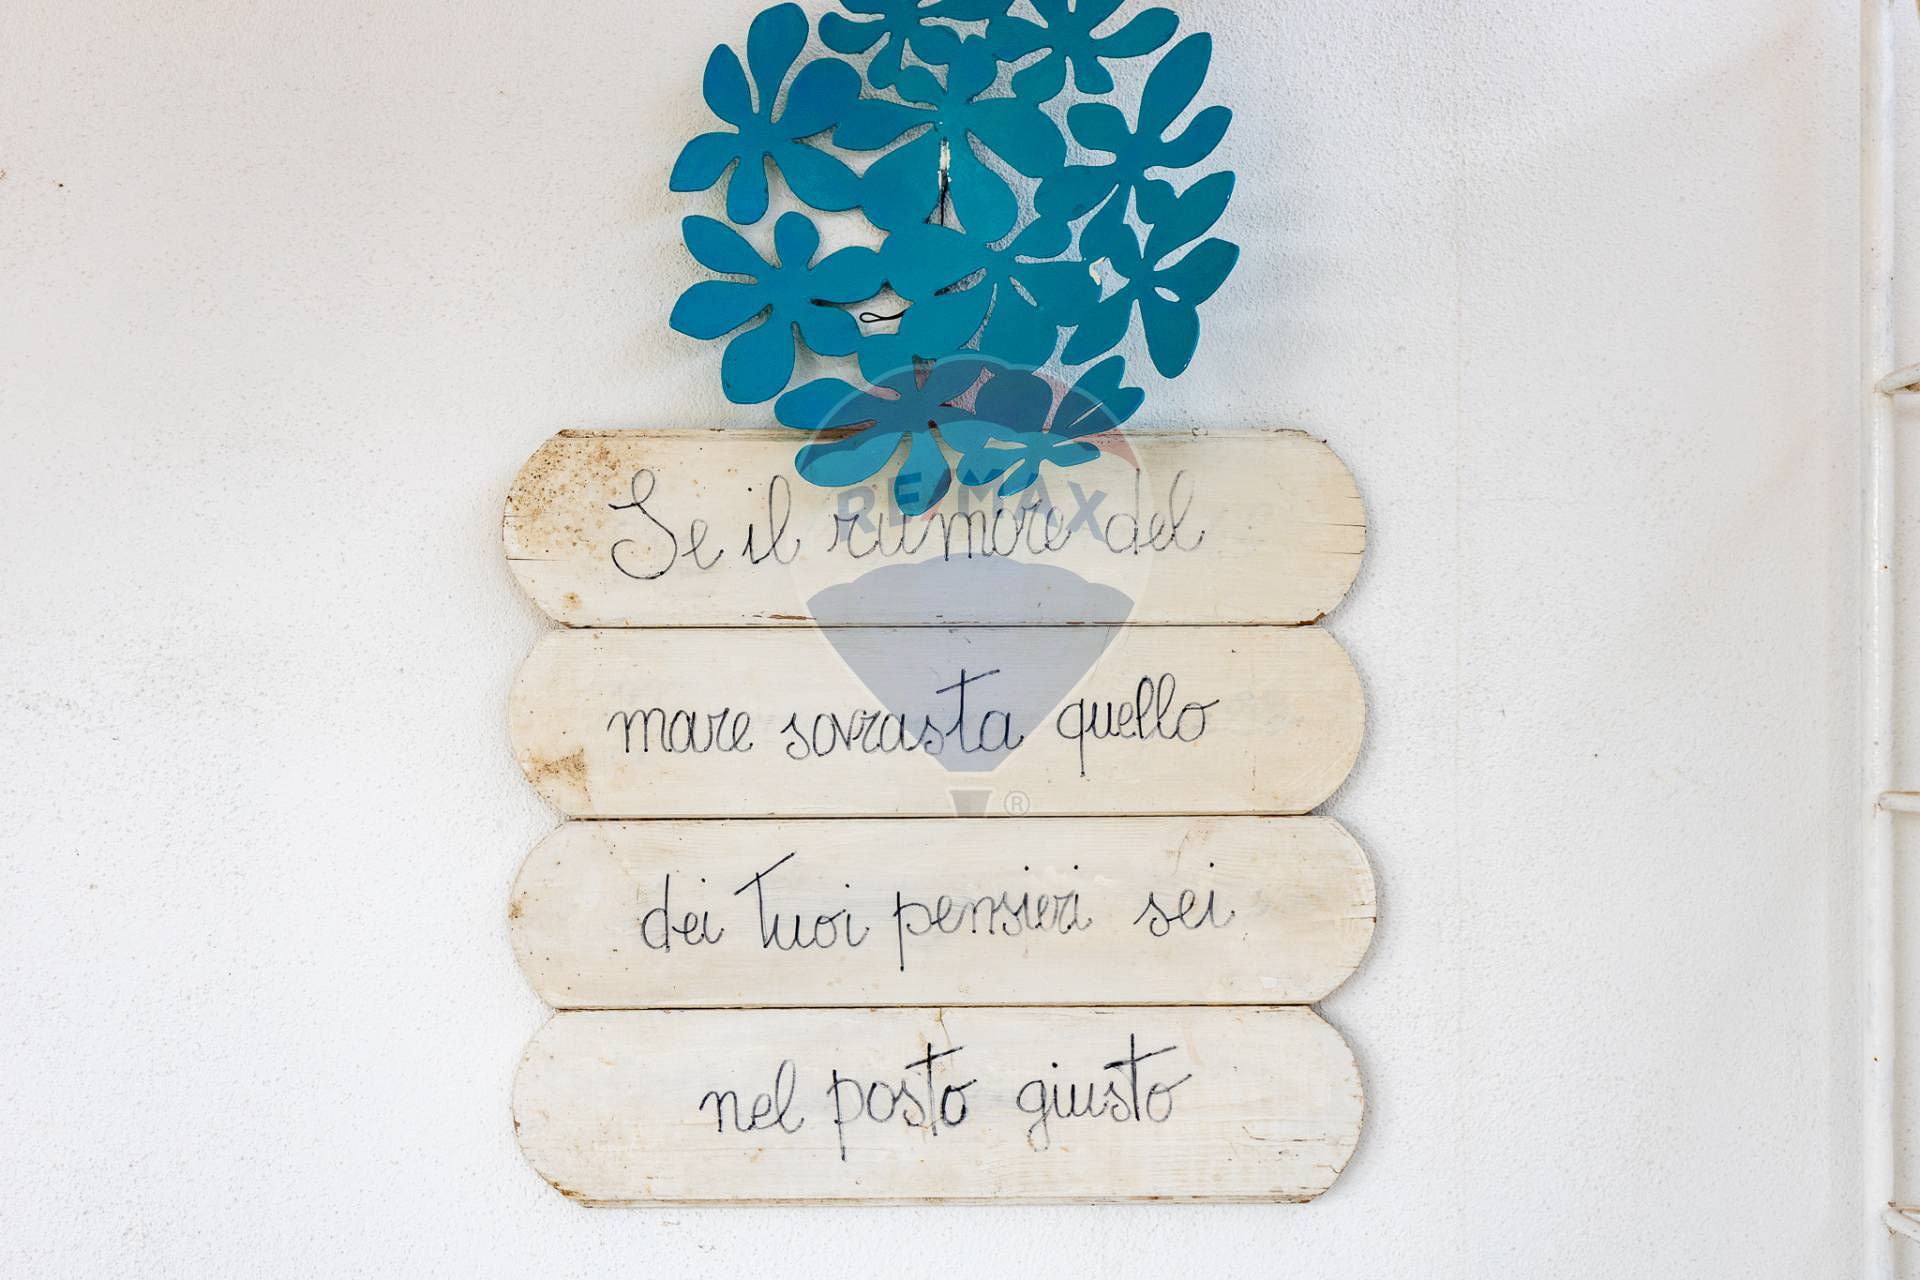 Se il rumore del
RE/MAX
mare sovrasta quello
®
dei tuoi pensieri sei
nel posto giusto